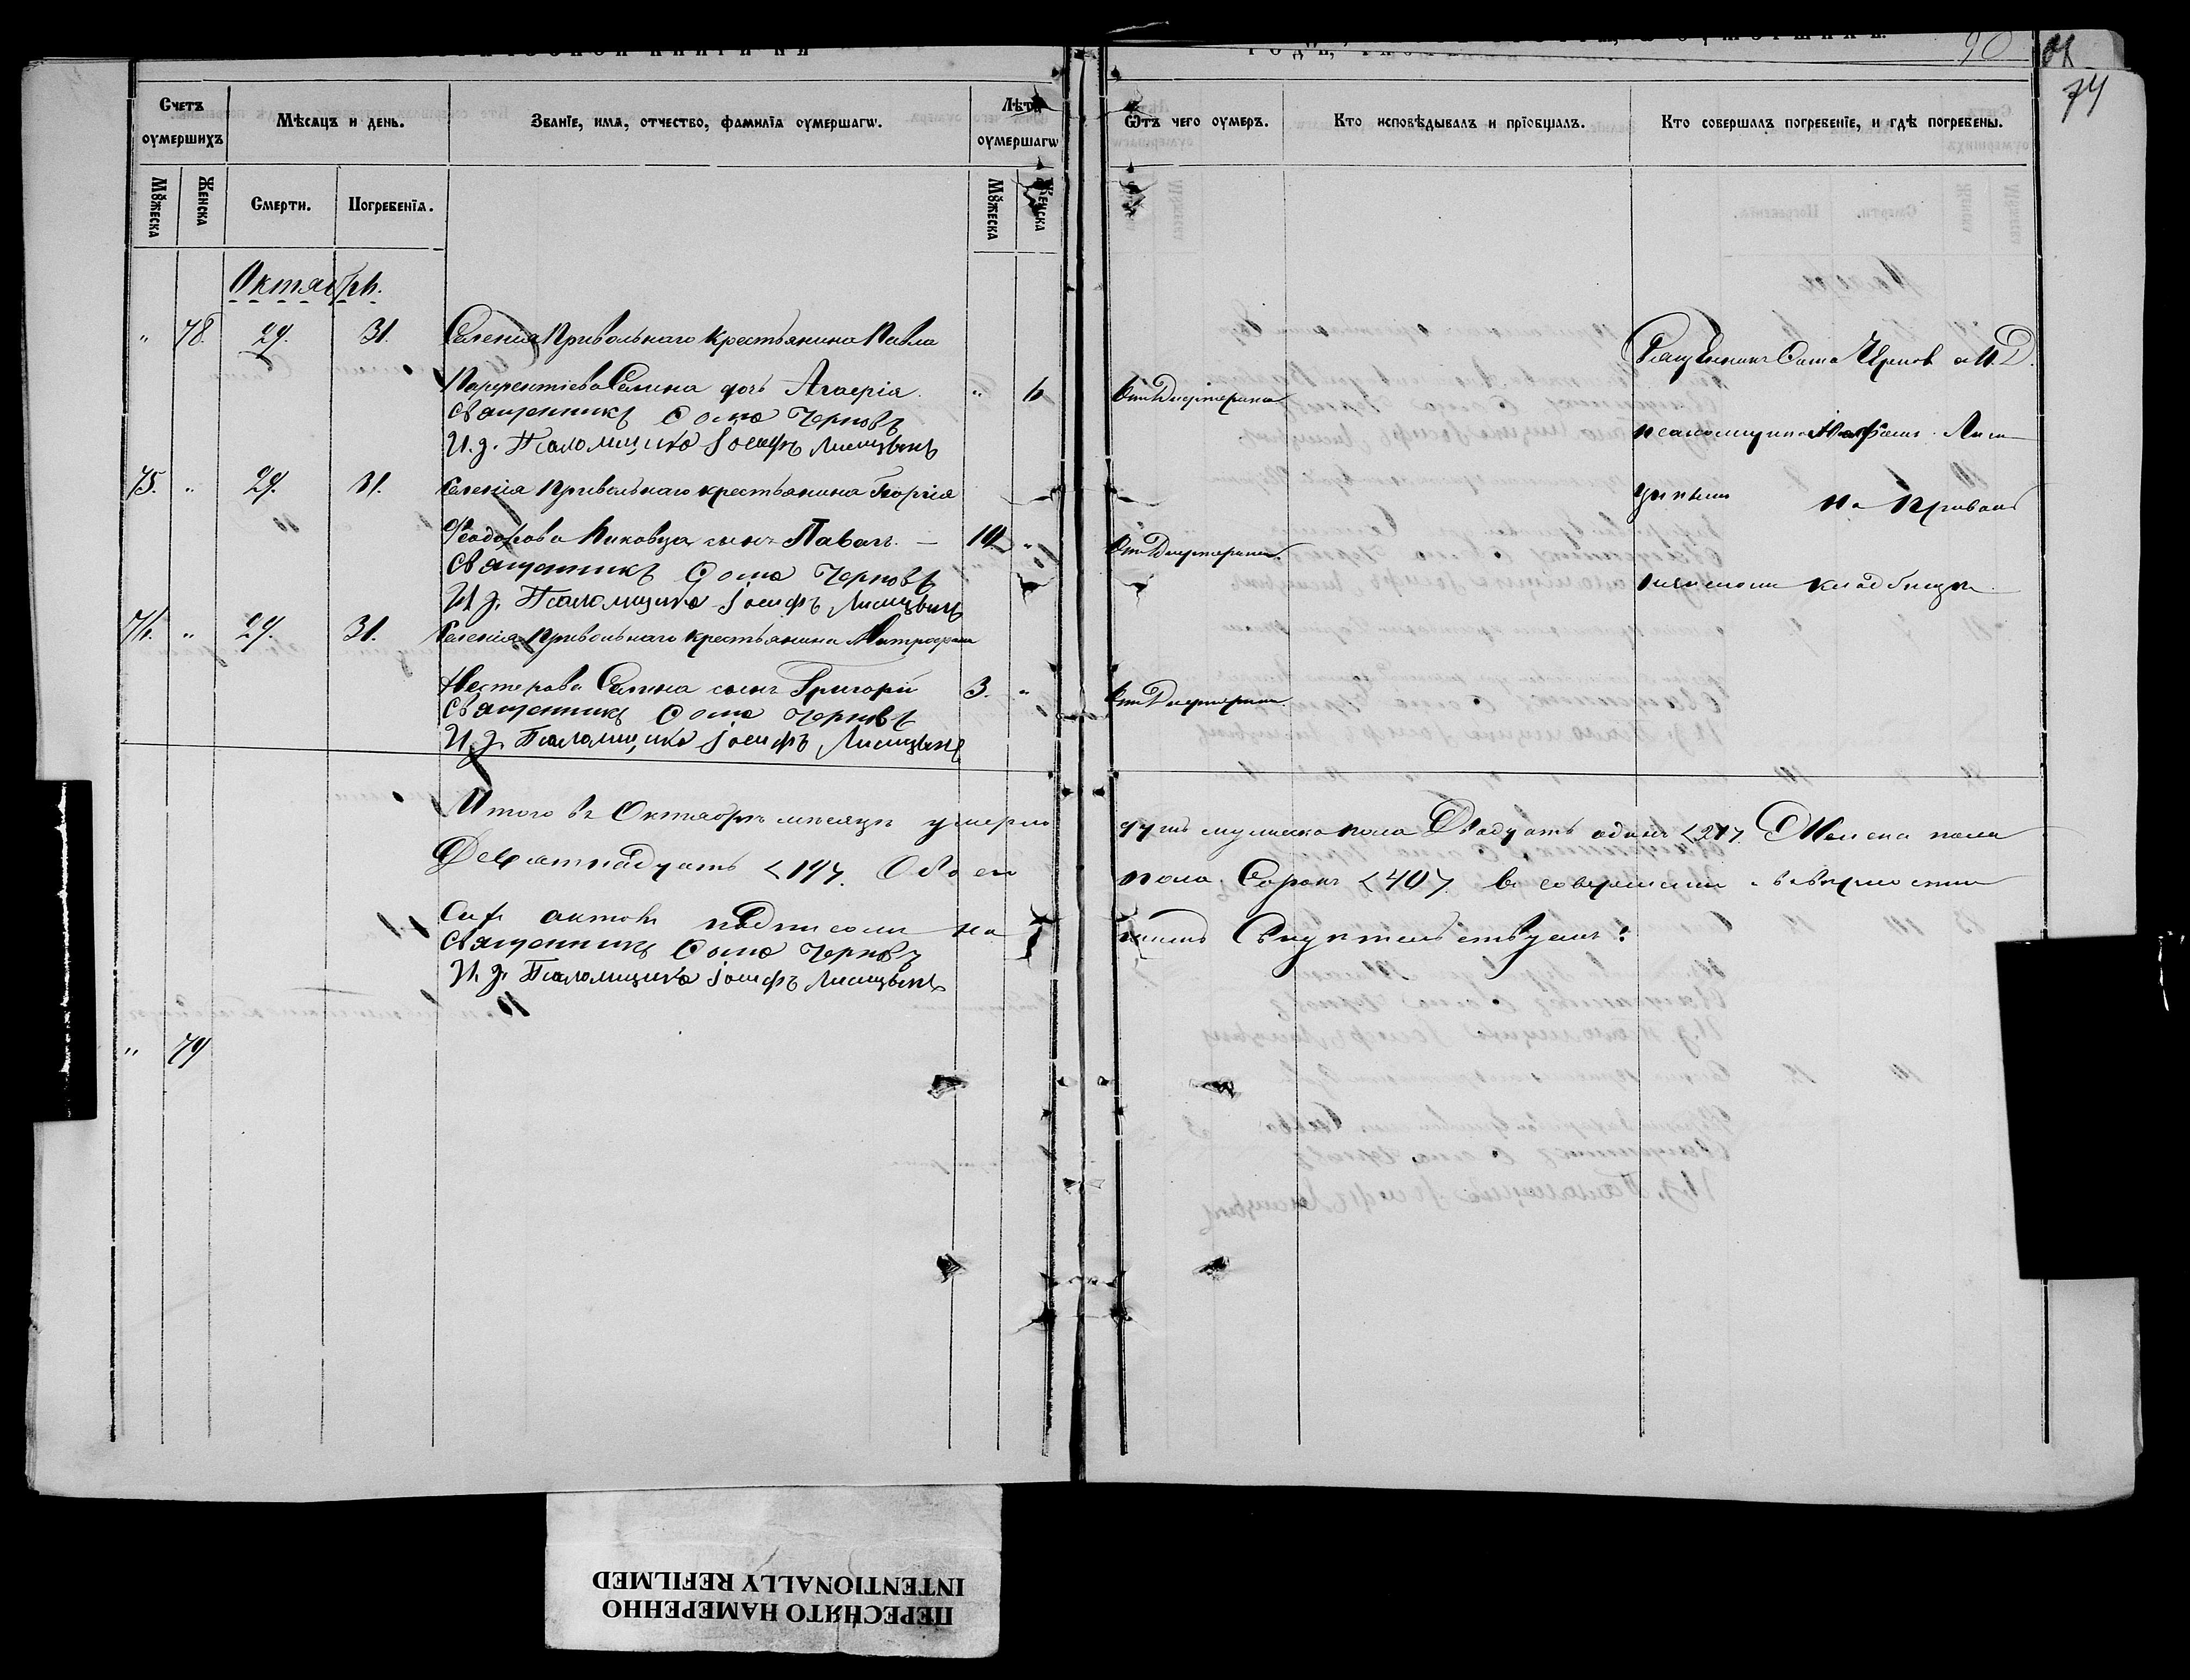 90
74
Счетъ оумершихъ
Мѣсяцъ и день.
Званіе, имя, отчество, фамилія оумершагѡ.
Лѣта оумершагѡ
Ѿтъ чего оумеръ.
Кто исповѣдывалъ и пріобщалъ.
Кто совершалъ погребеніе, и гдѣ погребены.
Мꙋжеска
Женска
Смерти.
Погребенія.
Мꙋжеска
Женска
Октябрь.
" 78. 29. 31. Селенія Привольнаго крестьянина Павла
Парфентіева Селина дочь Агафія. " 6 отъ Дифтерита
Священникъ Сома Черновъ
И. д. Псаломщика Іосифъ Лисицынъ
75. " 29. 31. Селенія Привольнаго крестьянина Георгія
Феодорова Никовца сынъ Павелъ. — 10. " отъ Дифтерита.
Священникъ Сома Черновъ
И. д. Псаломщика Іосифъ Лисицынъ
76. " 29. 31. Селенія Привольнаго крестьянина Митрофана
Нестерова Селина сынъ Григорій 3. " отъ Дифтерита
Священникъ Сома Черновъ
И. д. Псаломщика Іосифъ Лисицынъ
Священникъ Сома Чернов и И. Д.
псаломщика Лиси
цынъ На Приволь
ненскомъ кладбищѣ
Итого въ Октябрѣ мѣсяцѣ умерло
мужеска пола Двадцать одинъ <21>. Женска пола
Девятнадцать <19>. Обоего
пола Сорокъ <40>. въ
Сихъ актовъ подписомъ на
шимъ Свидѣтельствуемъ:
Священникъ Сома Черновъ
И. д. Псаломщика Іосифъ Лисицынъ
" 79
ПЕРЕСНЯТО НАМЕРЕННО
INTENTIONALLY REFILMED